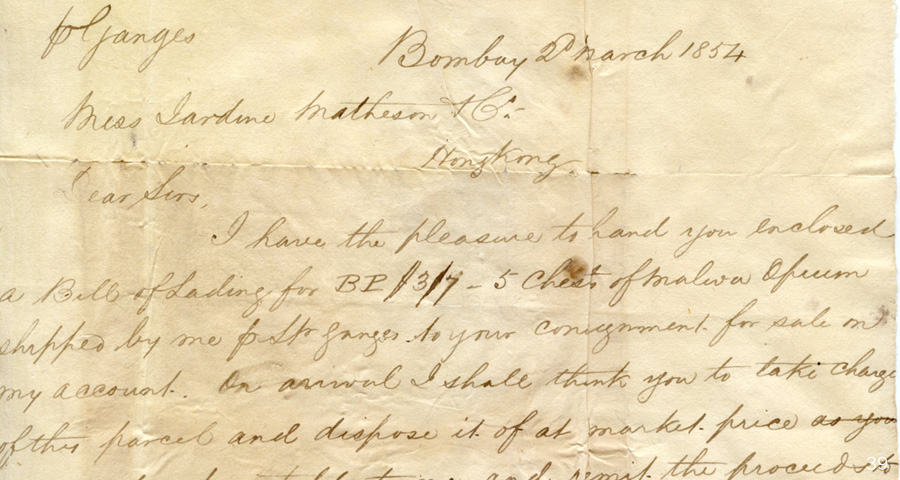 p Ganges
Bombay 2d March 1854
Mess Jardine Matheson & Co.
Hongkong
Dear Sirs,
I have the pleasure to hand you enclosed
a Bill of Lading for BP 5 Chests of Malwa Opium
shipped by me p Str Ganges to your consignment for sale on
my account. On arrival I shall think you to take charge
of this parcel and dispose it of at market price as you
and remit the proceeds to
39